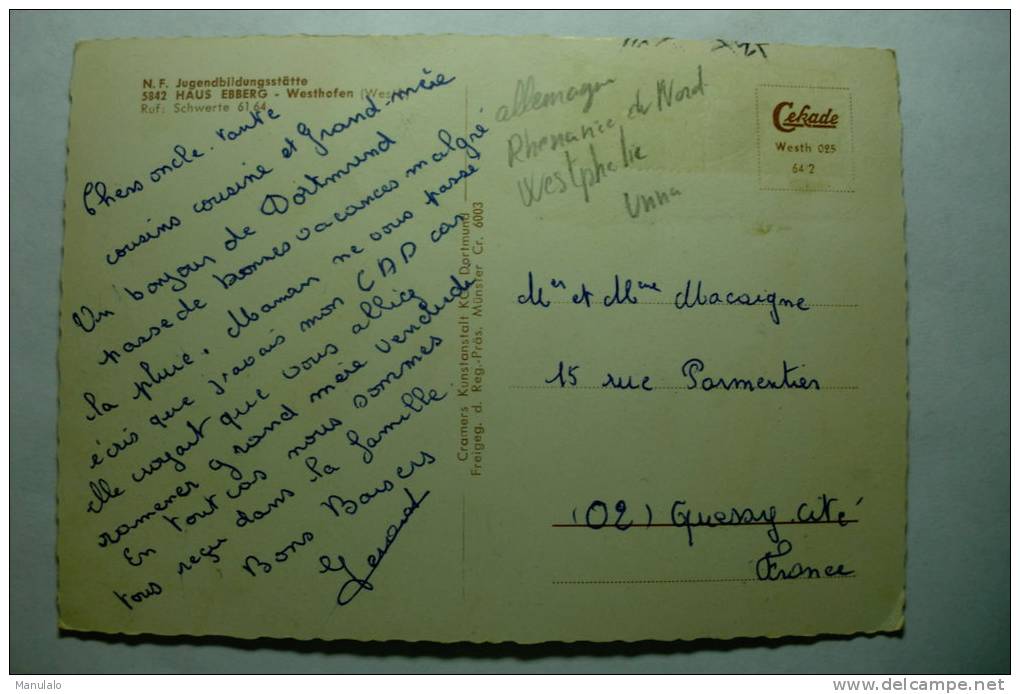 N. F. Jugendbildungsstätte
5842 HAUS EBBERG - Westhofen (Wes
Ruf: Schwerte 61 64
Chers oncle. tante
cousins cousine et Grand-mère
Un bonjour de Dortmund
passe de bonnes vacances malgré
la pluie. Maman ne vous passé
écris que j'avais mon CAP car
elle croyait que vous alliez
ramener grand mère vendredi
En tout cas nous sommes
tous reçu dans la famille.
Bons Baisers
Gerard
Cramers Kunstanstalt KG, Dortmund
Freigeg. d. Reg.-Präs. Münster Cr. 6003
allemagne
Rhenanie du Nord
Westphalie
Unna
Cekade
Westh 025
64/2
Mer et Mme Macaigne
15 rue Parmentier
(02) Quessy. Cité
France
Manulalo
www.delcampe.net